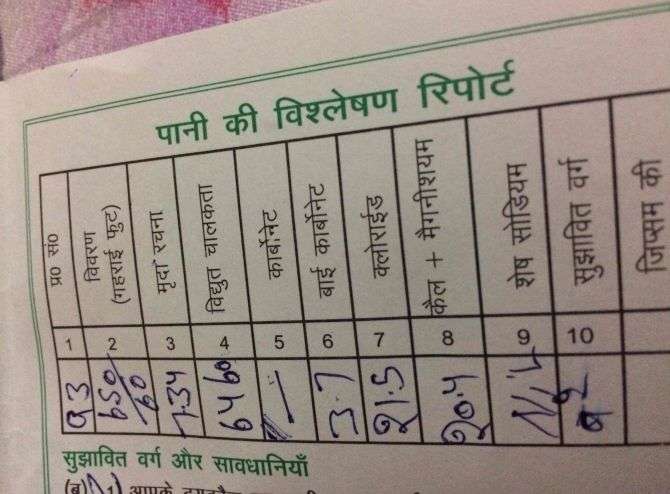 पानी की विश्लेषण रिपोर्ट
प्र० सं०
विवरण
(गहराई फुट)
मृदा रचना
विद्युत चालकता
कार्बोनेट
बाई कार्बोनेट
क्लोराईड
कैल + मैगनीशियम
शेष सोडियम
सुझावित वर्ग
जिप्सम की
1 2 3 4 5 6 7 8 9 10
93
650/60
7.34
6460
—
3.7
21.5
20.4
Nil
सुझावित वर्ग और सावधानियाँ
(ब) 1) आपके